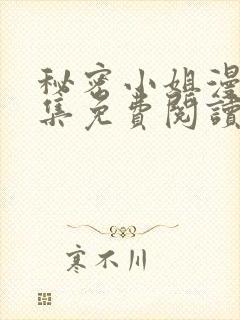 秘密小姐漫
集免費閱讀
寒不川